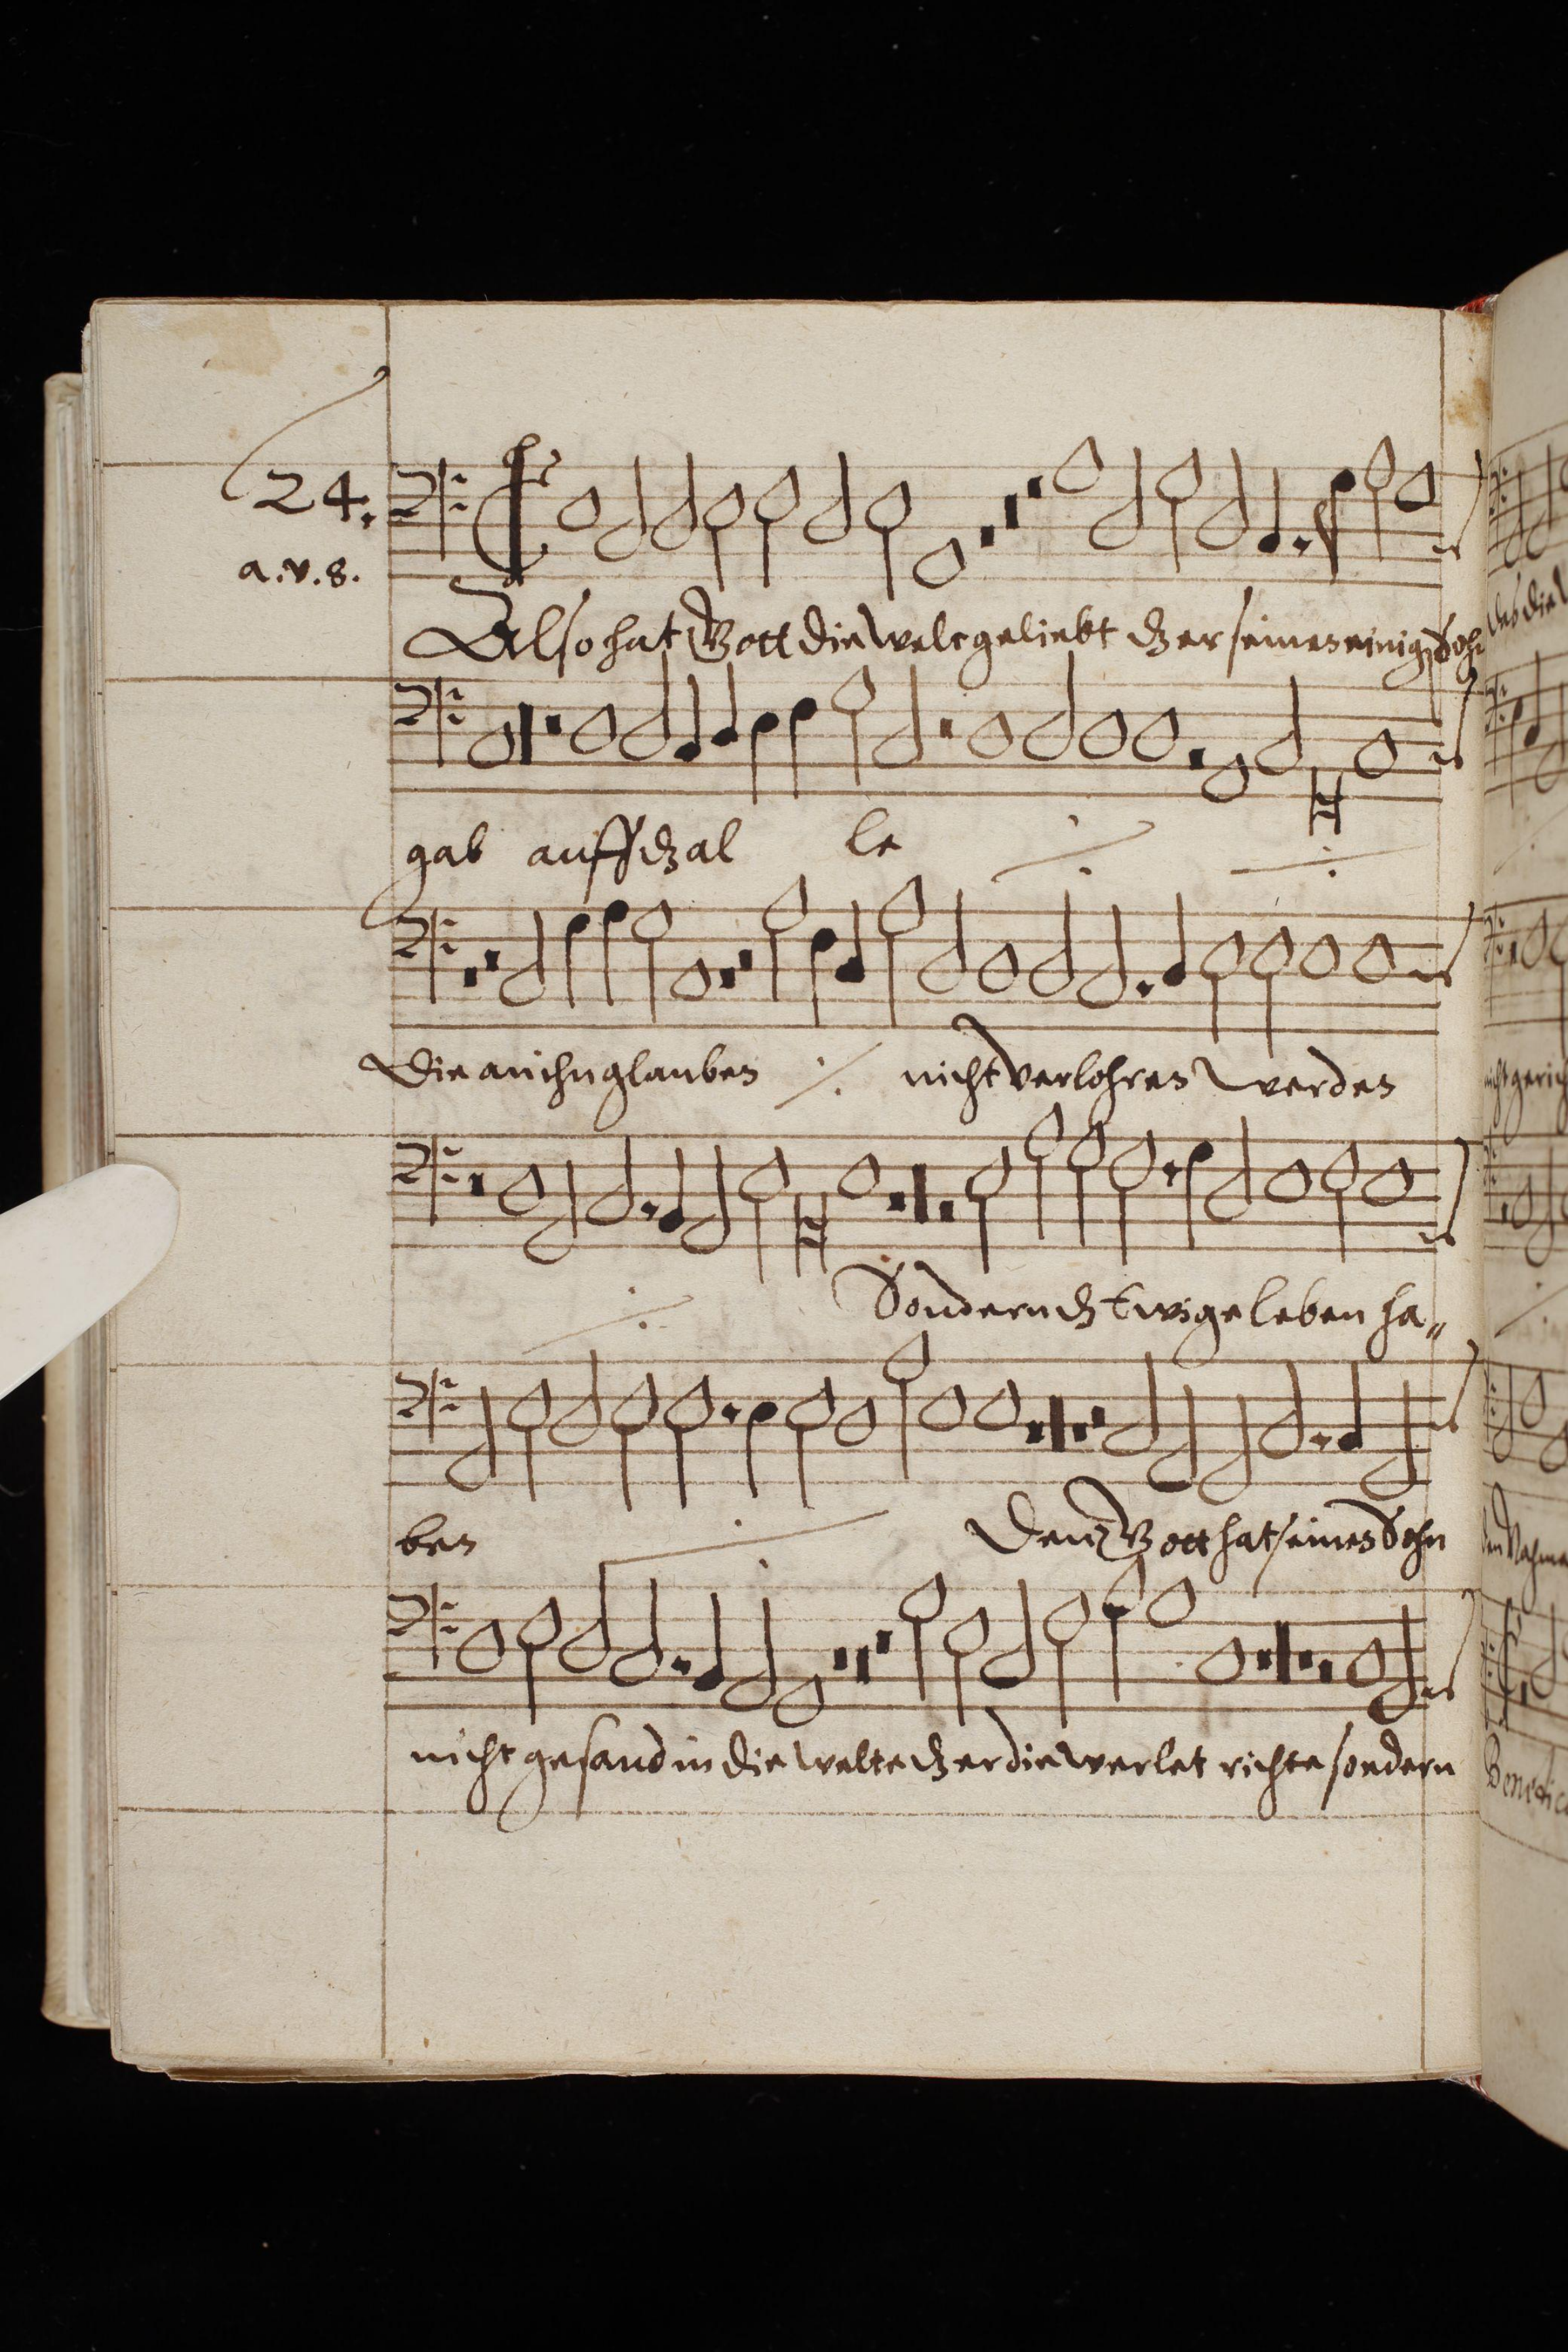 24.
a.v.8.
Also hat Gott die welt geliebt dz er seinen einigen Sohn
gab auff dz al le
Die an ihn glauben nicht verlohren werden
Sondern dz Ewige leben ha„
ben Denn Gott hat seinen Sohn
nicht gesand in die welt dz er die werlet richte sondern